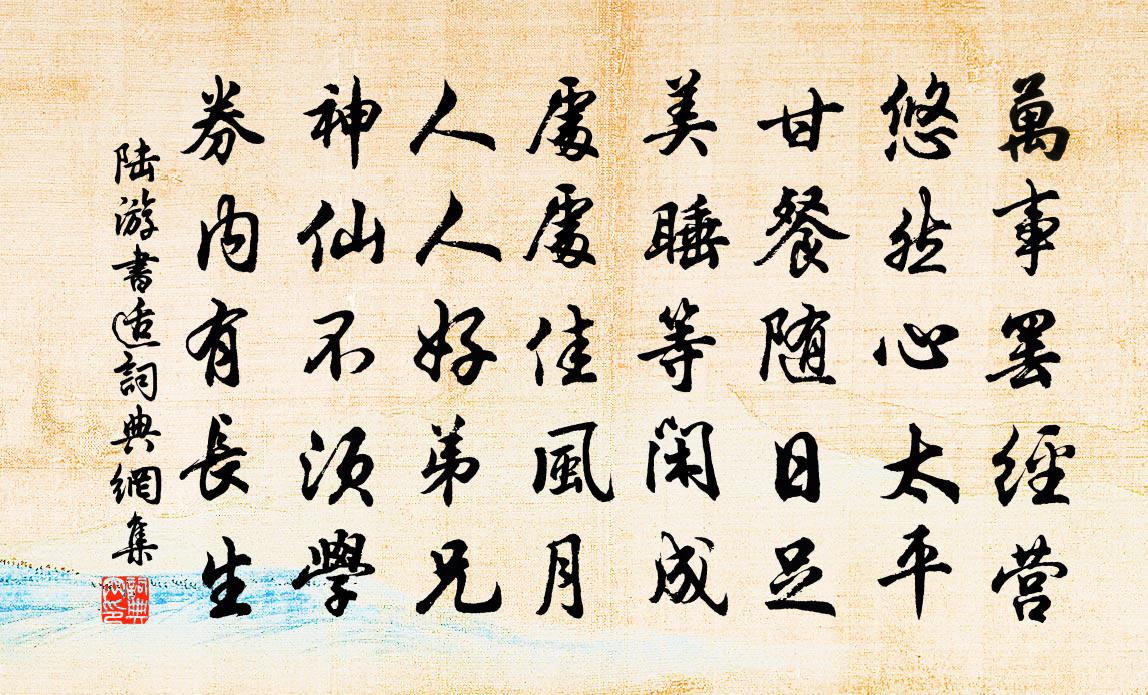 萬事罢經营
悠然心太平
甘餐随日足
美睡等闲成
處處佳風月
人人好弟兄
神仙不須學
券内有長生
陆游書适詞典網集